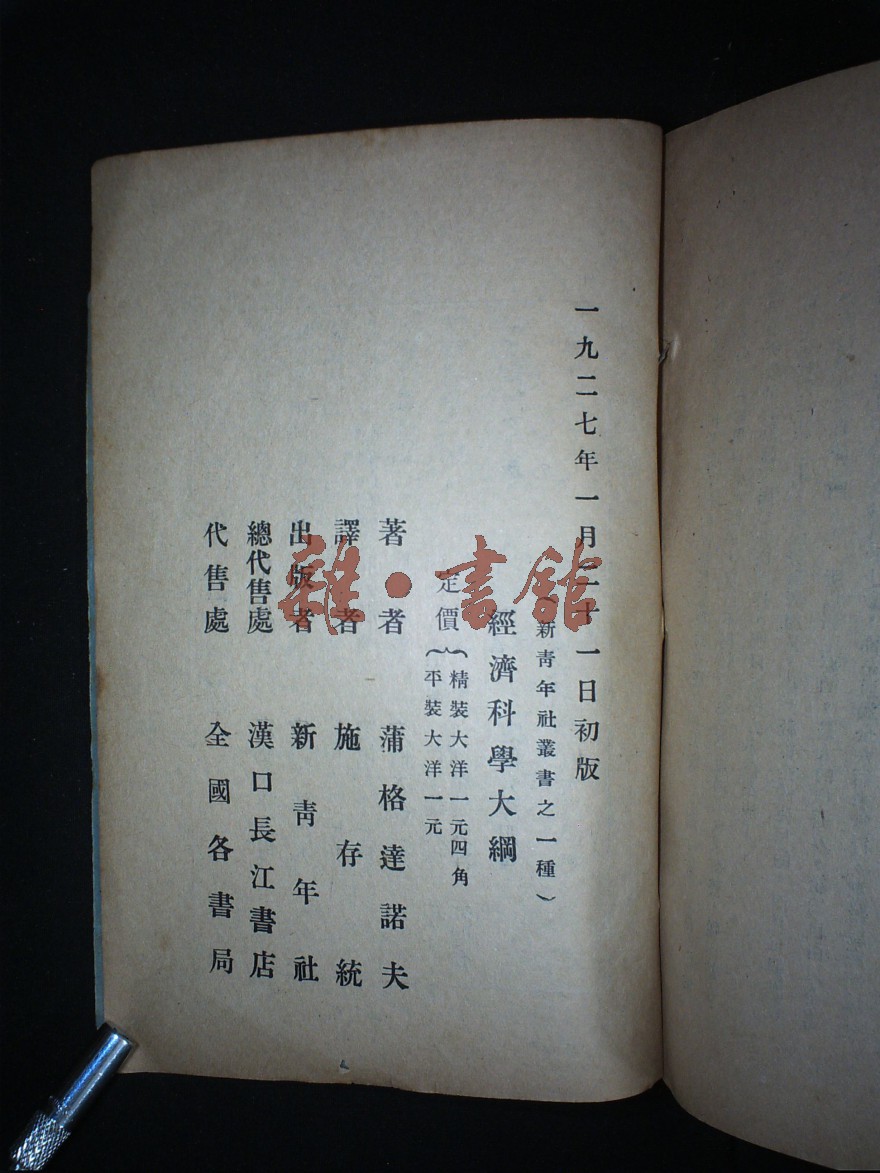 一九二七年一月二十一日初版
（新靑年社叢書之一種）
經濟科學大綱
定價
精裝大洋一元四角
平裝大洋一元
著者 蒲格達諾夫
譯者 施存統
出版者 新靑年社
總代售處 漢口長江書店
代售處 全國各書局
雜·書館